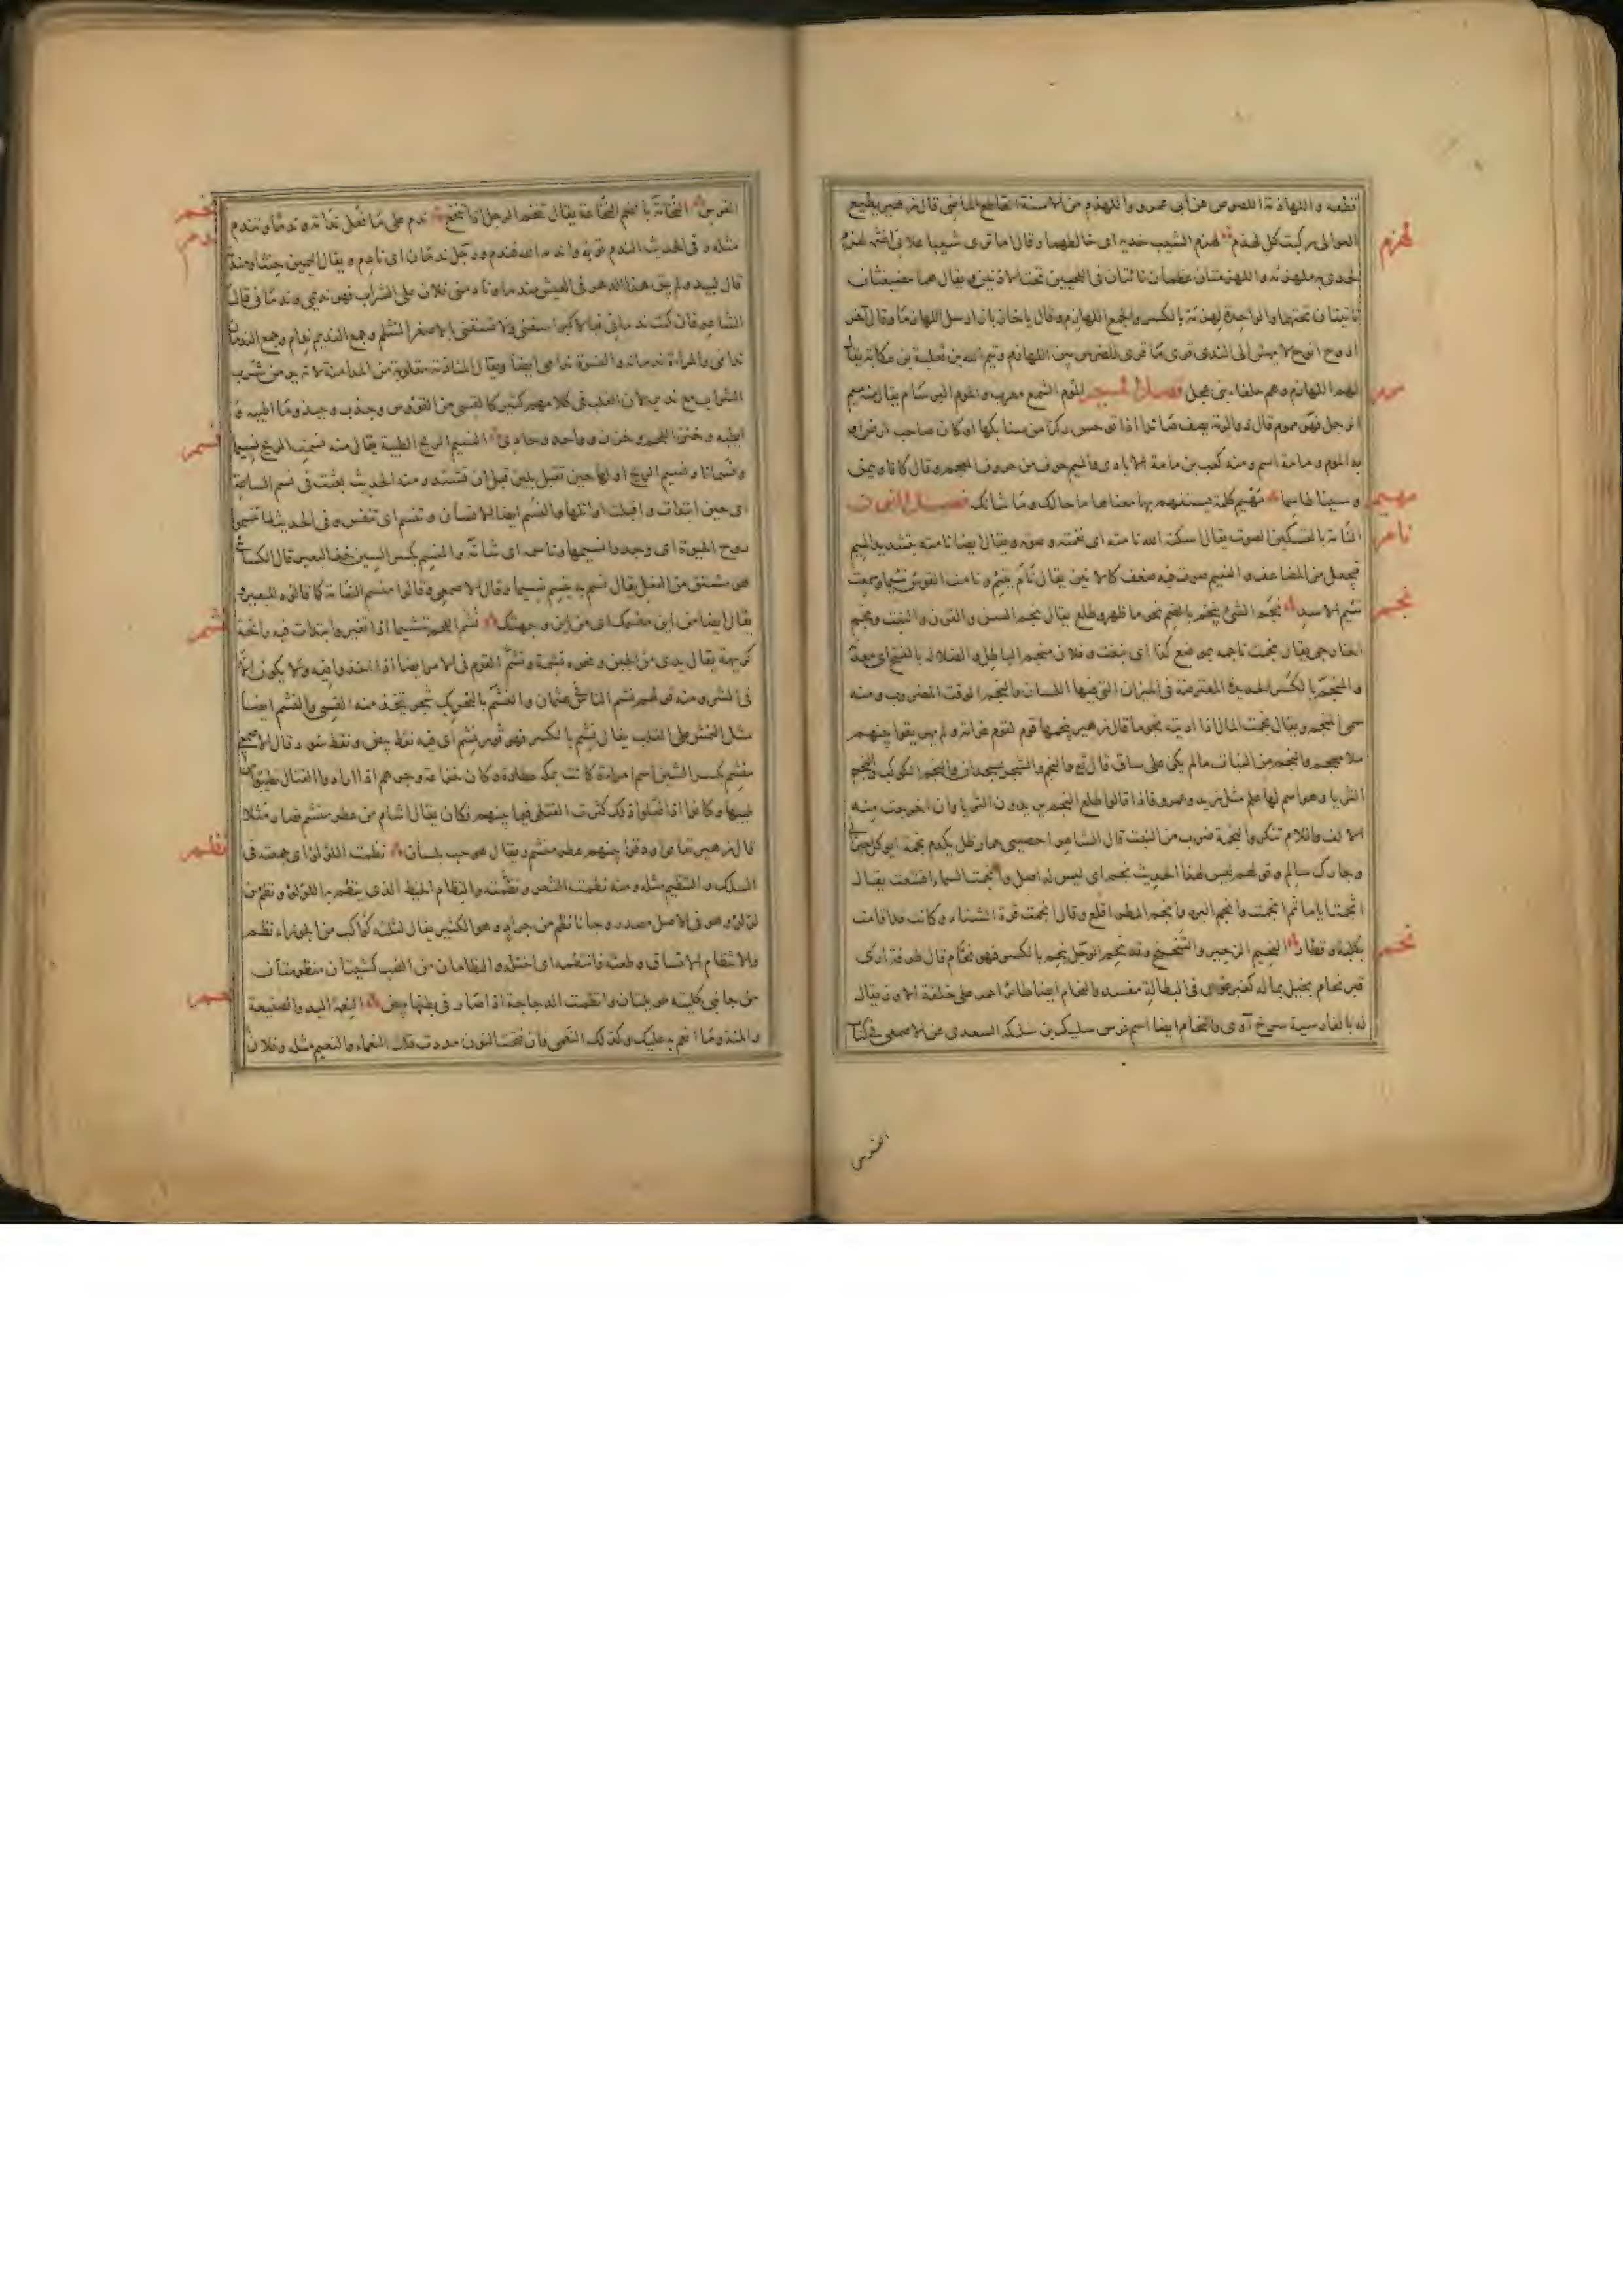 قطعه و اللهاذمة اللصوص عن أبي عمرو و اللهذم من الاسنة القاطع الماضي قال زهير يطيع
العوالى ركبت كل لهذم لهزم الشيب خديه اى خالطهما وقال اما ترى شيبا علانى اغثمه لهزم
لهزم
خدى به ملهزمه و اللهزمتان عظمان ناتئان فى اللحيين تحت الاذنين ويقال هما مضيغتان
تحتهما والواحدة لهزمة بالكسر والجمع اللهازم وقال يا خاز باز ارسل اللهازما وقال آخر
ازوح انوح لا يهش الى الندى قرى ما قرى للضرس بين اللهازم وتيم الله بن ثعلبة بن عكابة يقال
لهم اللهازم وهم حلفاء بنى عجل فصل الميم الموم الشمع معرب والموم البرسام يقال منه ميم
موم
الرجل فهو مموم قال ذو الرمة يصف صائدا اذا توجس ركزا من سنابكها او كان صاحب ارض او
به الموم و مامة اسم ومنه كعب بن مامة الايادى والميم حرف من حروف المعجم وقال كافا وميمين
وسينا طاسما مهيم كلمة يستفهم بها معناها ما حالك وما شانك فصل النون
مهيم
النأمة بالتسكين الصوت يقال اسكت الله نامته اى نغمته و صوته ويقال ايضا نامته بتشديد الميم
نام
فيجعل من المضاعف و النئيم صوت فيه ضعف كالانين يقال نأم ينئم و نامت القوس نئيما وسمعت
نئيم الاسد نجم الشئ ينجم بالضم نجوما ظهر وطلع يقال نجم السن والقرن والنبت ونجم
نجم
الخارجى يقال نجمت ناجمه بموضع كذا اى نبغت وفلان منجم الباطل والضلالة بالفتح اى معدنه
والمنجم بالكسر الحديدة المعترضة فى الميزان التى فيها اللسان والنجم الوقت المضروب ومنه
سمى المنجم ويقال نجمت المال اذا اديته نجوما قال زهير ينجمها قوم لقوم غرامة ولم يهريقوا بينهم
ملا محجم والنجم من النبات ما لم يكن على ساق قال تع والنجم والشجر يسجدان والنجم الكوكب والنجم
الثريا وهو اسم لها علم مثل زيد وعمرو فاذا قالوا طلع النجم يريدون الثريا وان اخرجت منه
الالف واللام تنكر والنجمة ضرب من النبت قال الشاعر احصيى حمار ظل يكدم نجمة ايوكل جيرانى
وجارك سالم وقولهم ليس لهذا الحديث نجم اى ليس له اصل وانجمت السماء اقشعت يقال
اثجمنا اياما ثم انجمت وانجم البرد وانجم المطر اقلع وقال انجمت قرة الشتاء وكانت قد اقامت
بكلبة وقطار النحيم الزحير والتنحنح وقد نحم الرجل ينحم بالكسر فهو نحام قال طرفة ارى
نحم
قبر نحام بخيل بماله كقبر غوى فى البطالة مفسد والنحام ايضا طائر احمر على خلقة الاوز يقال
له بالفارسية سرخ آوى والنحام ايضا اسم فرس سليك بن سلكة السعدى عن الاصمعى فى كتاب
الفرس
الفرس النخامة بالضم النخاعة يقال تنخم الرجل اذا تنخع ندم على ما فعل ندامة وندما وتندم
نخم
ندم
مثله وفى الحديث الندم توبة واندمه الله فندم ورجل ندمان اى نادم ويقال اليمين حنث او مندمة
قال لبيد ولم يبق هذا الدهر فى العيش مندما ونادمنى فلان على الشراب فهو نديمى وندمانى قال
الشاعر فان كنت ندمانى فبالاكبر اسقنى ولا تسقنى بالاصغر المتثلم وجمع النديم ندام وجمع الندمان
ندامى والمراة ندمانة والنسوة ندامى ايضا ويقال المنادمة مقلوبة من المدامنة لانه يدمن شرب
الشراب مع نديمه لان القلب فى كلامهم كثير كالقسى من القووس وجذب وجبذ وما اطيبه و
ايطبه وخنز اللحم وخزن وواحد وحادى النسيم الريح الطيبة يقال منه نسمت الريح نسيما
نسم
ونسمانا ونسيم الريح اولها حين تقبل بلين قبل ان تشتد ومنه الحديث بعثت فى نسم الساعة
اى حين ابتدات واقبلت اوائلها والنسم ايضا الانسان وتنسم اى تنفس وفى الحديث لما تنسموا
روح الحيوة اى وجدوا نسيمها وناسمه اى شامه والمنسم بكسر السين خف البعير قال الكسائى
هو مشتق من الفعل يقال نسم به ينسم نسيما وقال الاصمعى وقالوا منسم النعامة كما قالوه للبعير
يقال ايضا من اين منسمك اى من اين وجهتك نشم اللحم تنشيما اذا تغير وابتدات فيه رائحة
نشم
كريهة يقال يدى من الجبن ونحوه نشمة ونشم القوم فى الامر ايضا اذا اخذوا فيه ولا يكون الا
فى الشر ومنه قولهم نشم الناس فى عثمان والنشم بالتحريك شجر يتخذ منه القسى والنشم ايضا
مثل النمش على القلب يقال نشم بالكسر فهو ثور نشم اى فيه نقط بيض ونقط سود وقال الاصمعى
منشم بكسر الشين اسم امراة كانت بمكة عطارة وكان خزاعة وجرهم اذا ارادوا القتال طيبوا من
طيبها وكانوا اذا فعلوا ذلك كثرت القتلى فيما بينهم فكان يقال اشام من عطر منشم فصار مثلا
قال زهير تفانوا ودقوا بينهم عطر منشم ويقال هو حب بلسان نظمت اللؤلؤ اى جمعته فى
نظم
السلك والتنظيم مثله ومنه نظمت الشعر ونظمته والنظام الخيط الذى ينظم به اللؤلؤ ونظم من
لؤلؤ وهو فى الاصل مصدر وجانا نظم من جراد وهو الكثير يقال لثلثة كواكب من الجوزاء نظم
والانتظام الاتساق وطعنه فانتظمه اى اختله والنظامان من الضب كشيتان منظومتان
من جانبى كليتيه طويلتان وانظمت الدجاجة اذا صار فى بطنها بيض النعمة اليد والصنيعة
نعم
والمنة وما انعم به عليك وكذلك النعمى فان فتحت النون مددت قلت النعماء والنعيم مثله وفلان